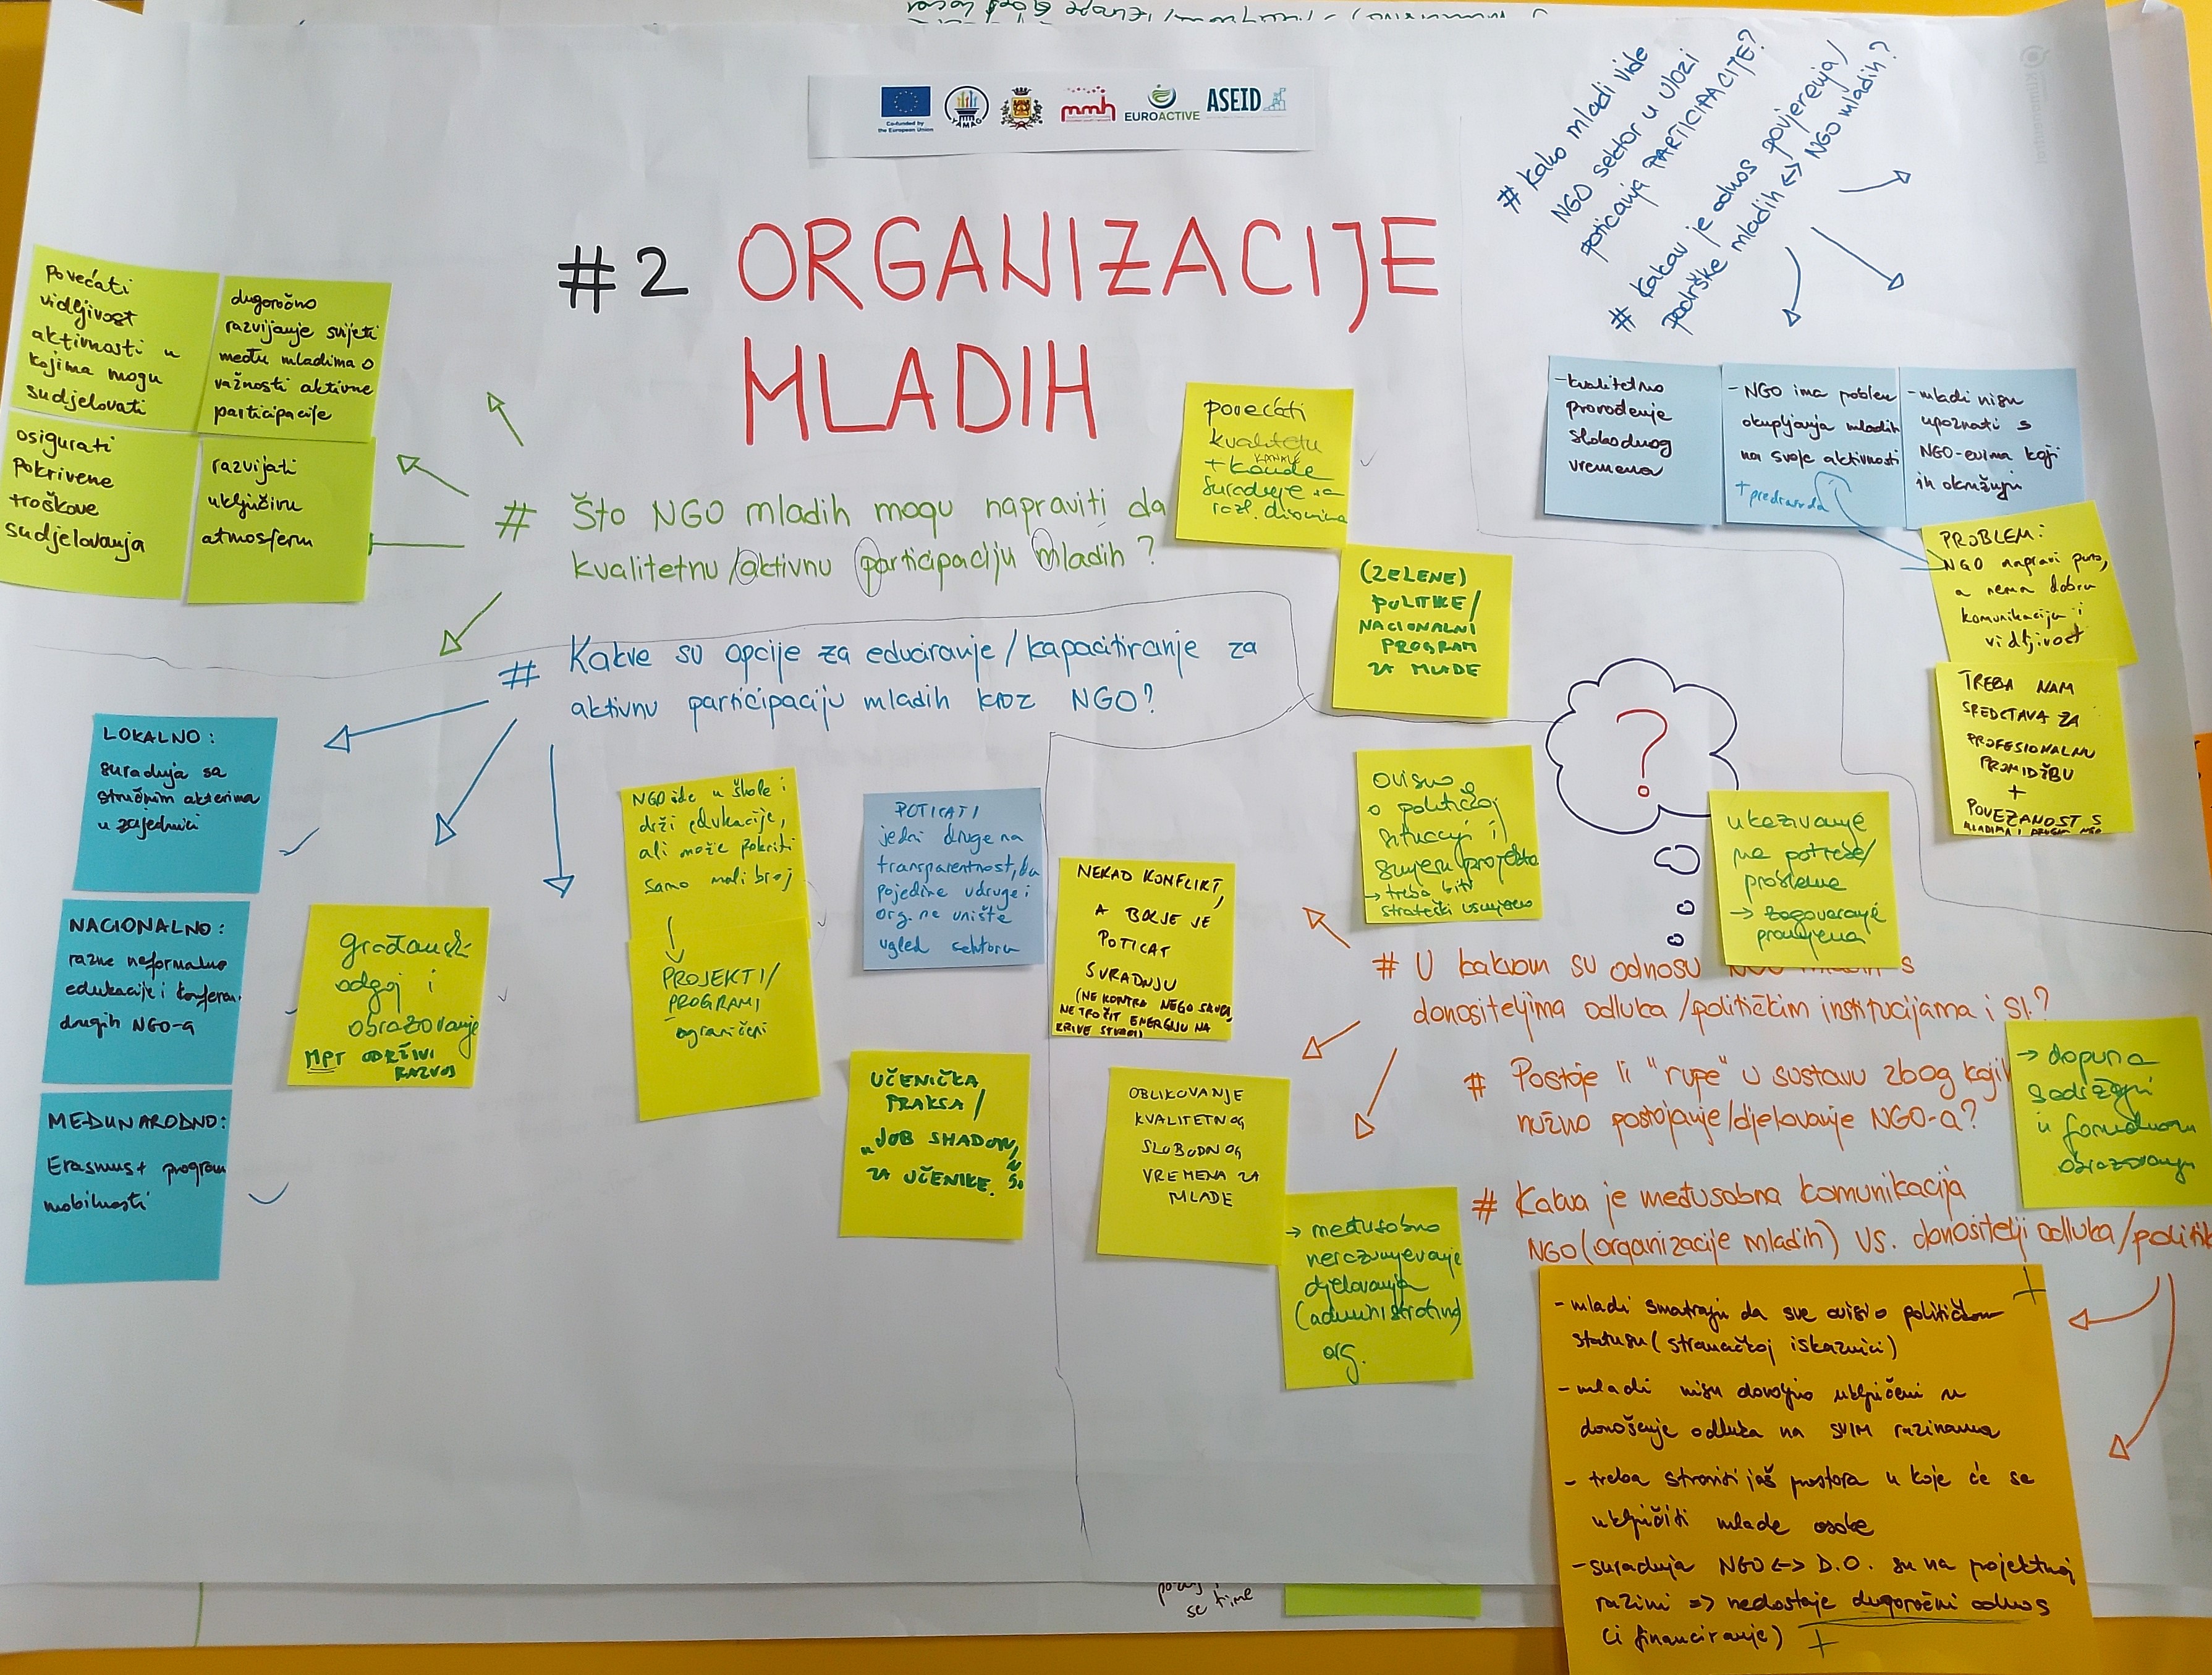 Co-funded by
the European Union
mmh
EUROACTIVE
ASEID
#2 ORGANIZACIJE
MLADIH
# Kako mladi vide
NGO sektor u ulozi
poticanja PARTICIPACIJE?
# Kakav je odnos povjerenja/
podrške mladih <-> NGO mladih?
povećati
vidljivost
aktivnosti u
kojima mogu
sudjelovati
dugoročno
razvijanje svijesti
među mladima o
važnosti aktivne
participacije
osigurati
pokrivene
troškove
sudjelovanja
razvijati
uključivu
atmosferu
# Što NGO mladih mogu napraviti da
kvalitetnu/aktivnu participaciju mladih?
povećati
kvalitetu
KANALE
suradnje sa
razl. dionicima
(ZELENE)
POLITIKE/
NACIONALNI
PROGRAM
ZA MLADE
-kvalitetno
provođenje
slobodnog
vremena
-NGO ima problem
okupljanja mladih
na svoje aktivnosti
-mladi nisu
upoznati s
NGO-evima koji
ih okružuju
PROBLEM:
NGO napravi puno,
a nema dobru
komunikaciju i
vidljivost
TREBA NAM
SREDSTAVA ZA
PROFESIONALNU
PROMIDŽBU
+
POVEZANOST S
MLADIMA I DRUGIM NGO
# Kakve su opcije za educiranje/kapacitiranje za
aktivnu participaciju mladih kroz NGO?
LOKALNO:
suradnja sa
stručnim akterima
u zajednici
NACIONALNO:
razne neformalne
edukacije i konferen.
drugih NGO-a
MEĐUNARODNO:
Erasmus+ program
mobilnosti
građanski
odgoj i
obrazovanje
MPT ODRŽIVI
RAZVOJ
NGO ide u škole i
drži edukacije,
ali može pokriti
samo mali broj
PROJEKTI/
PROGRAMI
ograničeni
POTICATI
jedni druge na
transparentnost, da
pojedine udruge i
org. ne unište
ugled sektora
UČENIČKA
PRAKSA/
"JOB SHADOWING"
ZA UČENIKE.
?
NEKAD KONFLIKT,
A BOLJE JE
POTICAT
SURADNJU
(NE KONTRA NEGO SKUPA,
NE TROŠIT ENERGIJU NA
KRIVE STVARI)
ovisno
o političkoj
situaciji i
smjeru projekta
→ treba biti
strateški usmjeren
ukazivanje
na potrebe/
probleme
→ zagovaranje
promjena
# U kakvom su odnosu NGO mladih s
donositeljima odluka/političkim institucijama i sl.?
# Postoje li "rupe" u sustavu zbog kojih
nužno postojanje/djelovanje NGO-a?
→ dopuna
sadržaja
u formalnom
obrazovanju
OBLIKOVANJE
KVALITETNOG
SLOBODNOG
VREMENA ZA
MLADE
→ međusobno
nerazumijevanje
djelovanja
(administrativno)
org.
# Kakva je međusobna komunikacija
NGO (organizacije mladih) vs. donositelji odluka/politik
-mladi smatraju da sve ovisi o političkom
statusu (stranačkoj iskaznici)
-mladi nisu dovoljno uključeni u
donošenje odluka na SVIM razinama
- treba stvoriti još prostora u koje će se
uključiti mlade osobe
-suradnja NGO <-> D.O. su na projektnoj
razini => nedostaje dugoročni odnos
(i financiranje) +
se time